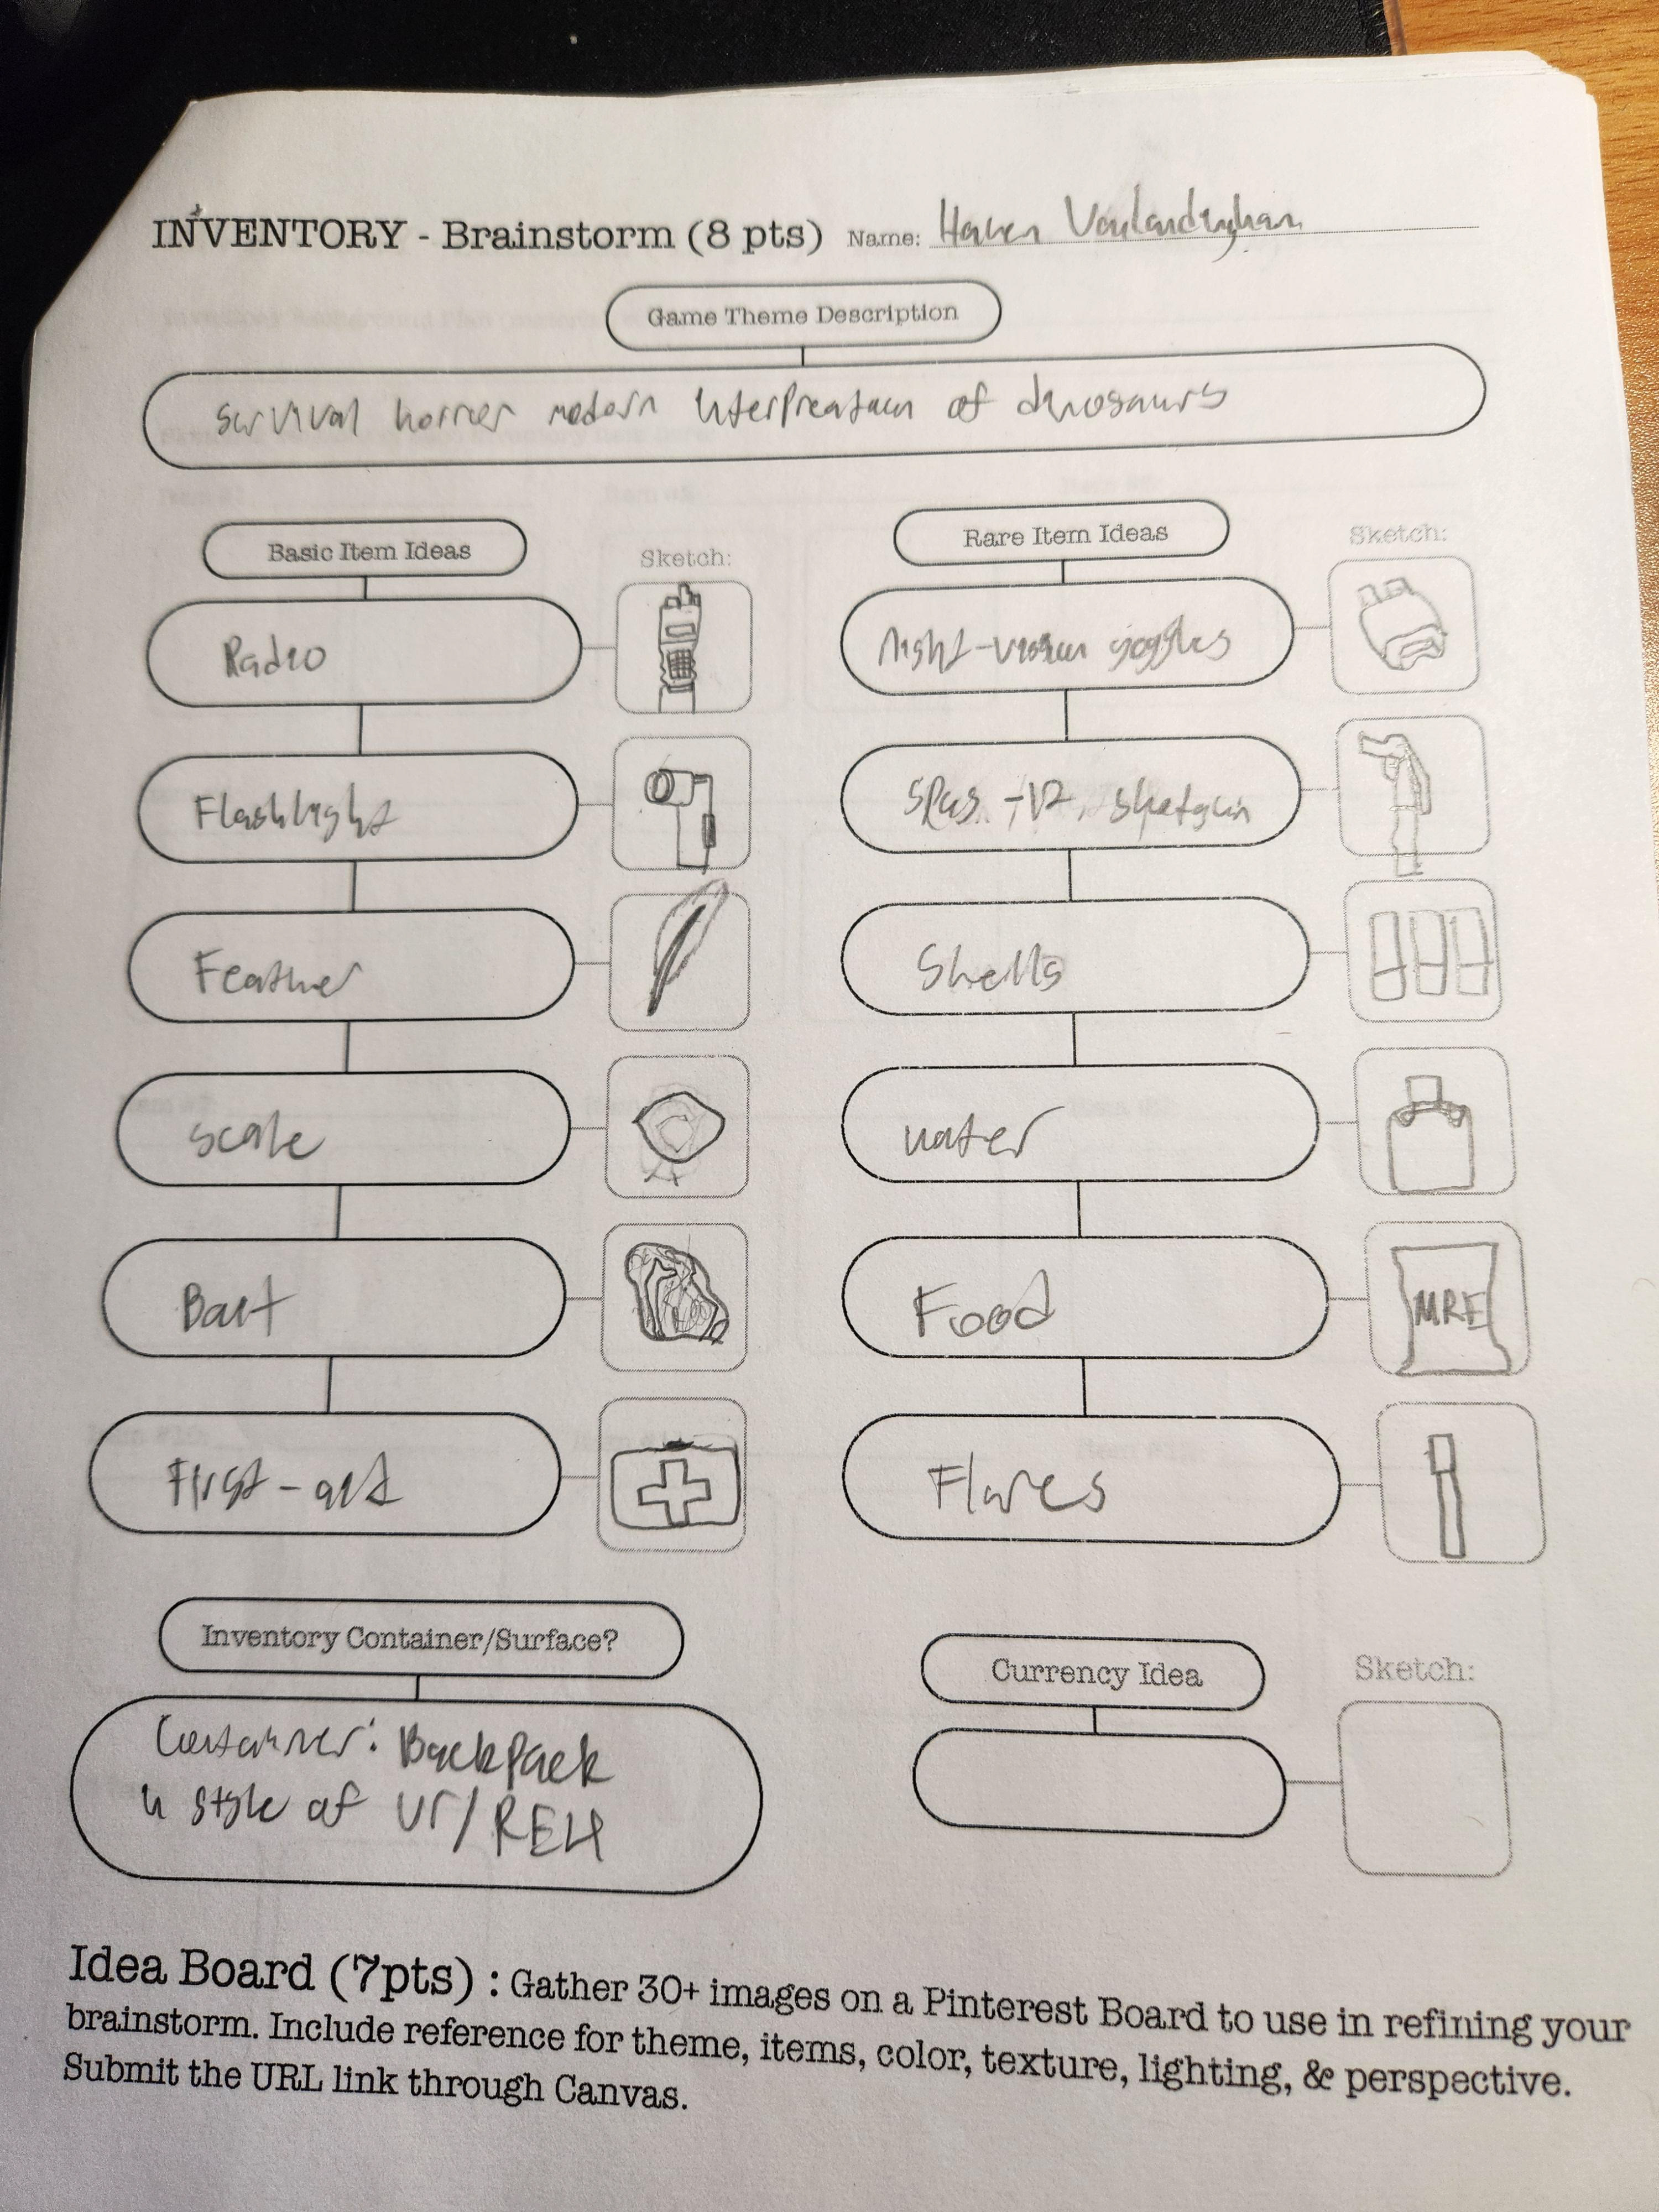 INVENTORY - Brainstorm (8 pts) Name: Haven Vanlandingham
Game Theme Description
Survival horror modern interpretation of dinosaurs
Basic Item Ideas
Sketch:
Rare Item Ideas
Sketch:
Radio
night-vision goggles
Flashlight
Spas-12 shotgun
Feather
Shells
scale
water
Bait
Food
MRE
First-aid
Flares
Inventory Container/Surface?
Container: Backpack
in style of /RE4
Currency Idea
Sketch:
Idea Board (7pts) : Gather 30+ images on a Pinterest Board to use in refining your
brainstorm. Include reference for theme, items, color, texture, lighting, & perspective.
Submit the URL link through Canvas.